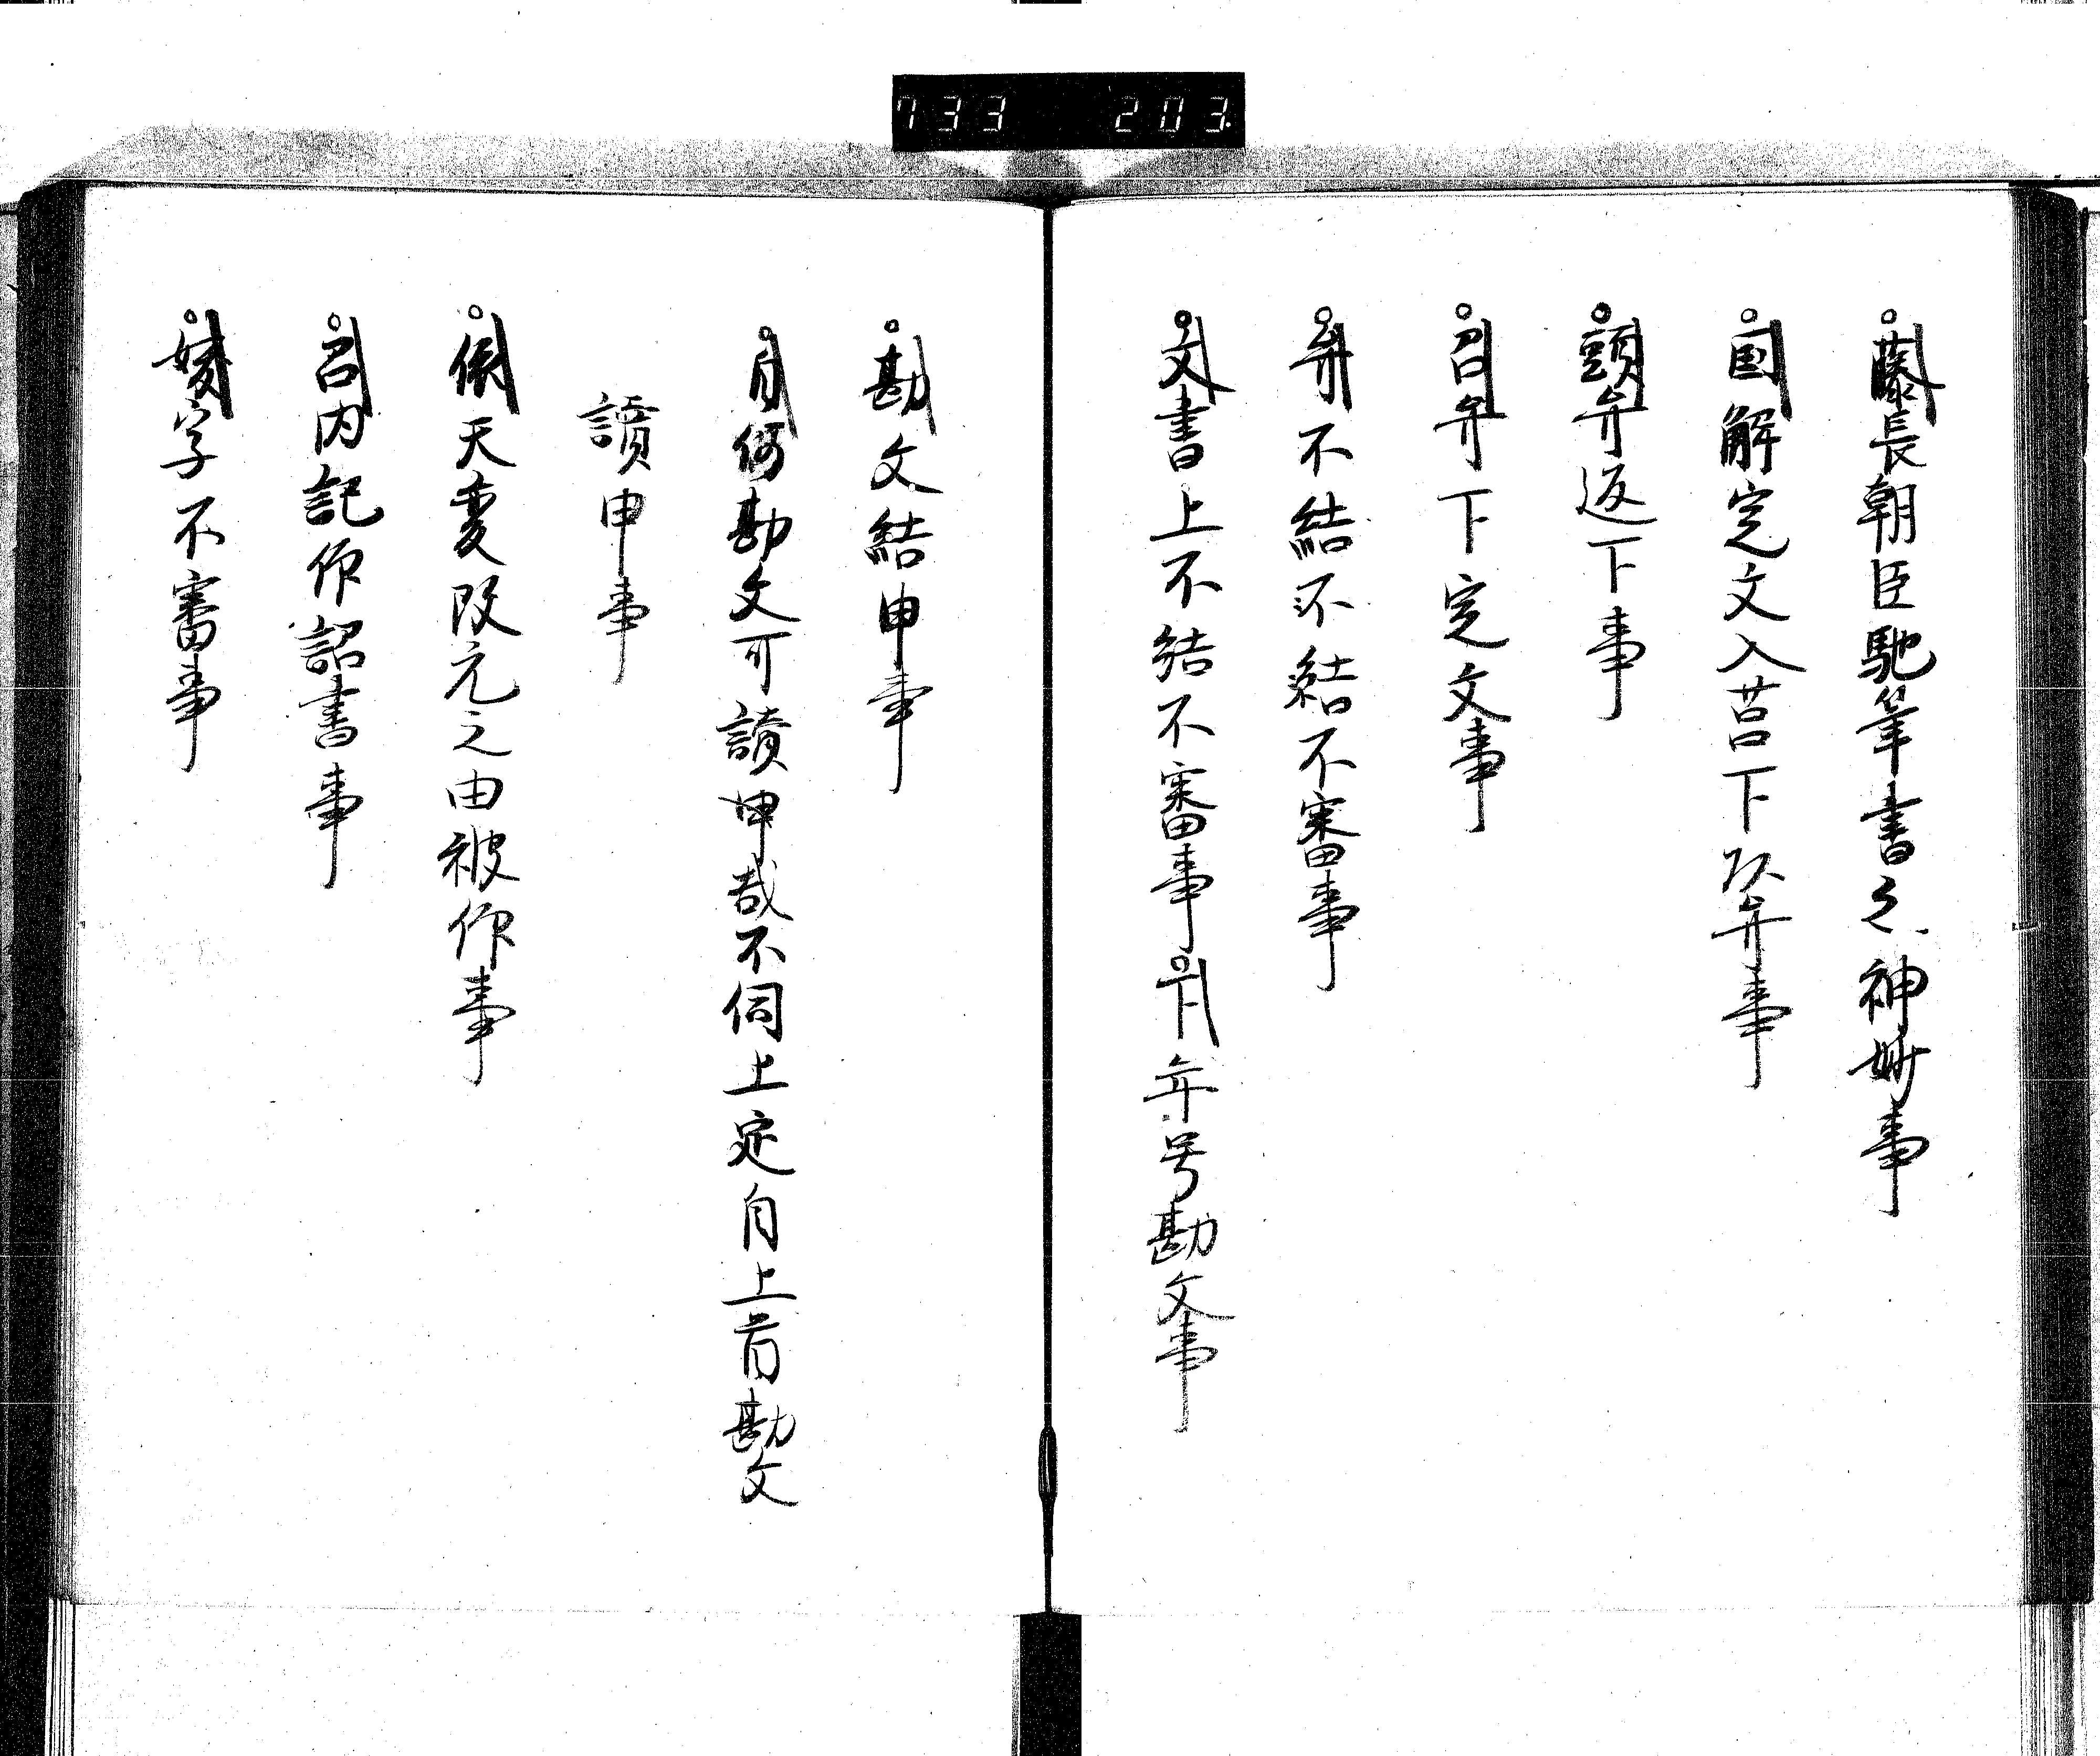 733 203
藤長朝臣馳筆書之神妙事
国解定文入莒下頭弁事
頭弁返下事
召弁下定文事
弁不結不結不審事
文書上不結不審事 下年号勘文事
勘文結申事
自何勘文可讀申哉不伺上定自上首勘文
讀申事
依天変改元之由被仰事
召内記仰詔書事
字不審事